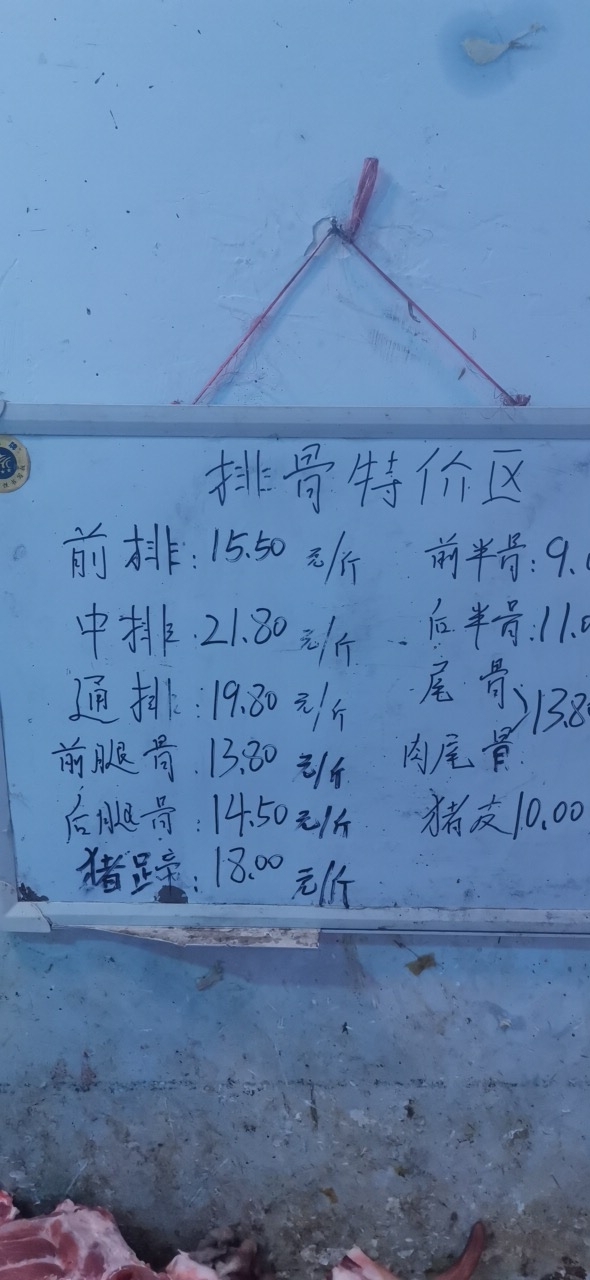 排骨特价区
前排:15.50元/斤
中排:21.80元/斤
通排:19.80元/斤
前腿骨:13.80元/斤
后腿骨:14.50元/斤
猪蹄:18.00元/斤
前半骨:9.
后半骨:11.0
尾骨
肉尾骨
13.80
猪皮10.00